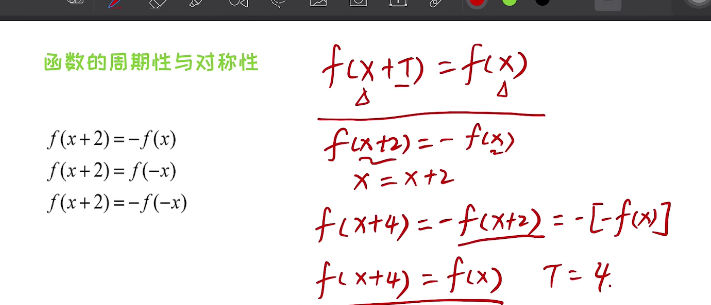 函数的周期性与对称性
f(x+2)=-f(x)
f(x+2)=f(-x)
f(x+2)=-f(-x)
f(x+T)=f(x)
f(x+2)=-f(x)
x=x+2
f(x+4)=-f(x+2)=-[-f(x)]
f(x+4)=f(x) T=4.